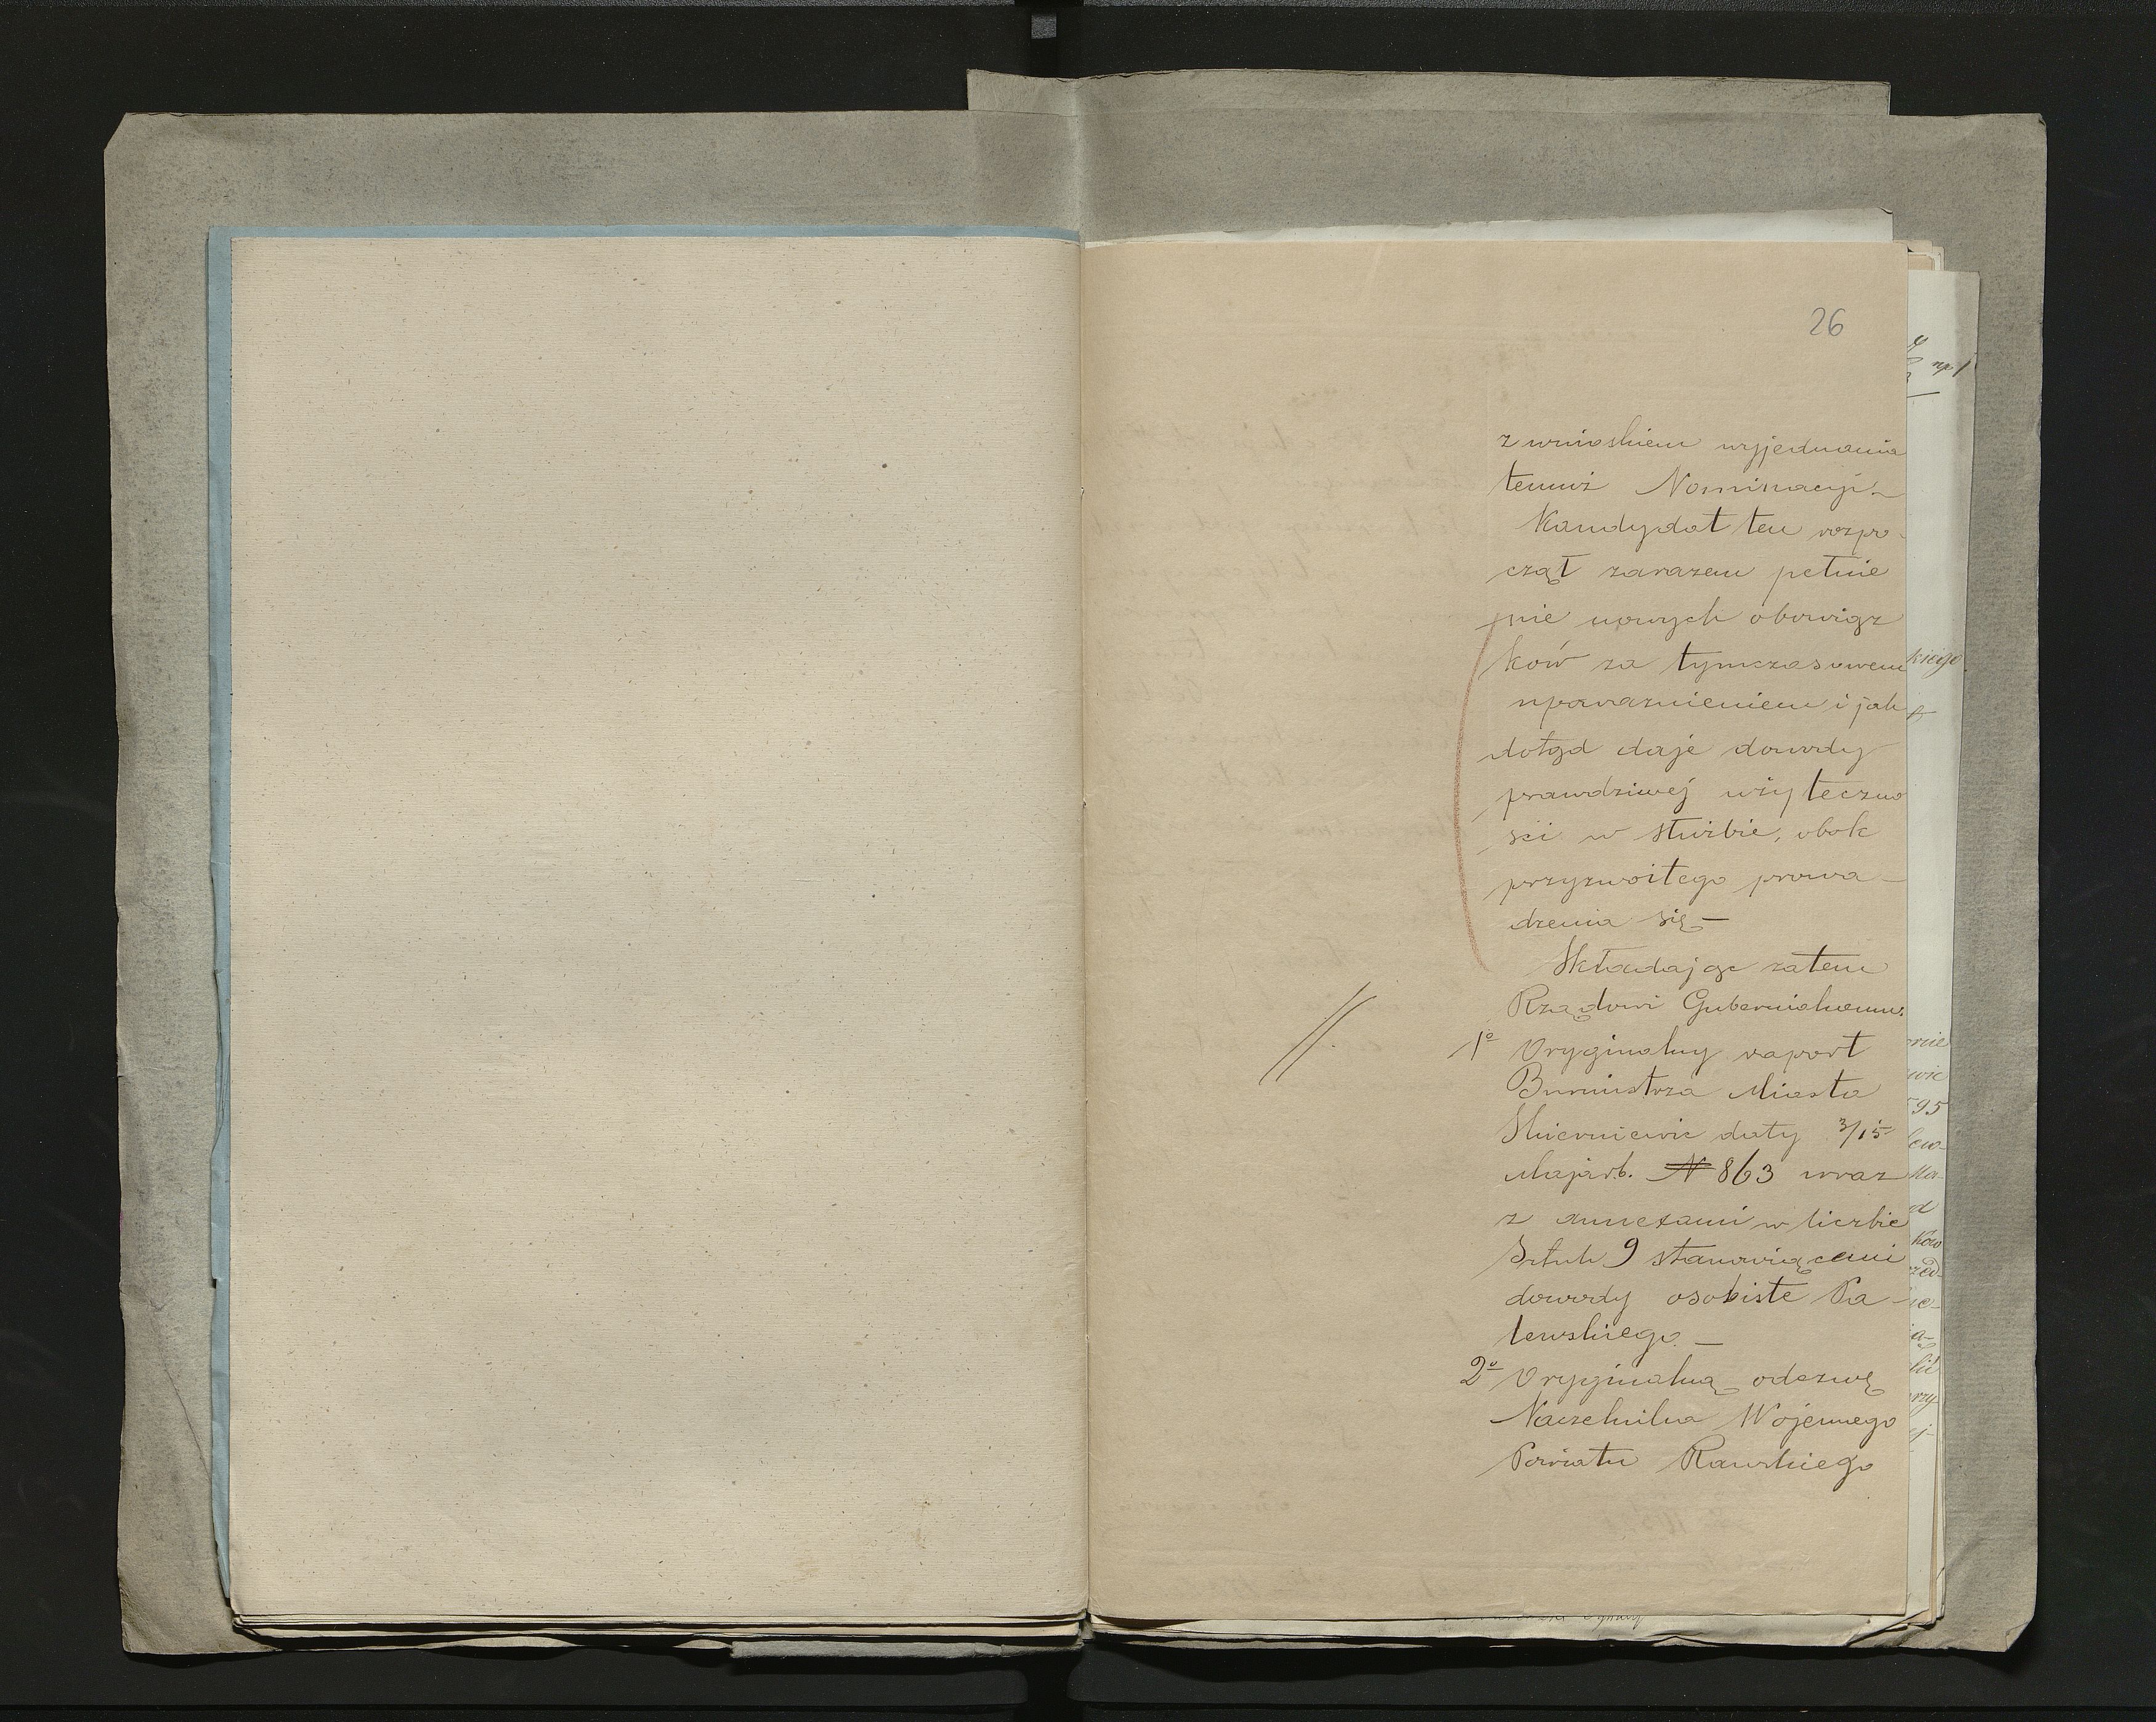 26
z wnioskiem wyjednania
temuż Nominacyi.—
Kandydat ten rozpo-
czął zarazem pełnie
nie nowych obowiąz
ków za tymczasowem
upoważnieniem i jak
dotąd daje dowody
prawdziwej użyteczno
ści w służbie, obok
przyzwoitego prowa-
dzenia się—
Składając zatem
Rządowi Gubernialnemu.
1º Oryginalny raport
Burmistrza Miasta
Skierniewic daty 3/15
Maja r.b. N 863 wraz
z annexami w liczbie
Sztuk 9 stanowiącemi
dowody osobiste Pa-
lewskiego.—
2º Oryginalną odezwę
Naczelnika Wojennego
Powiatu Rawskiego
kiego
95